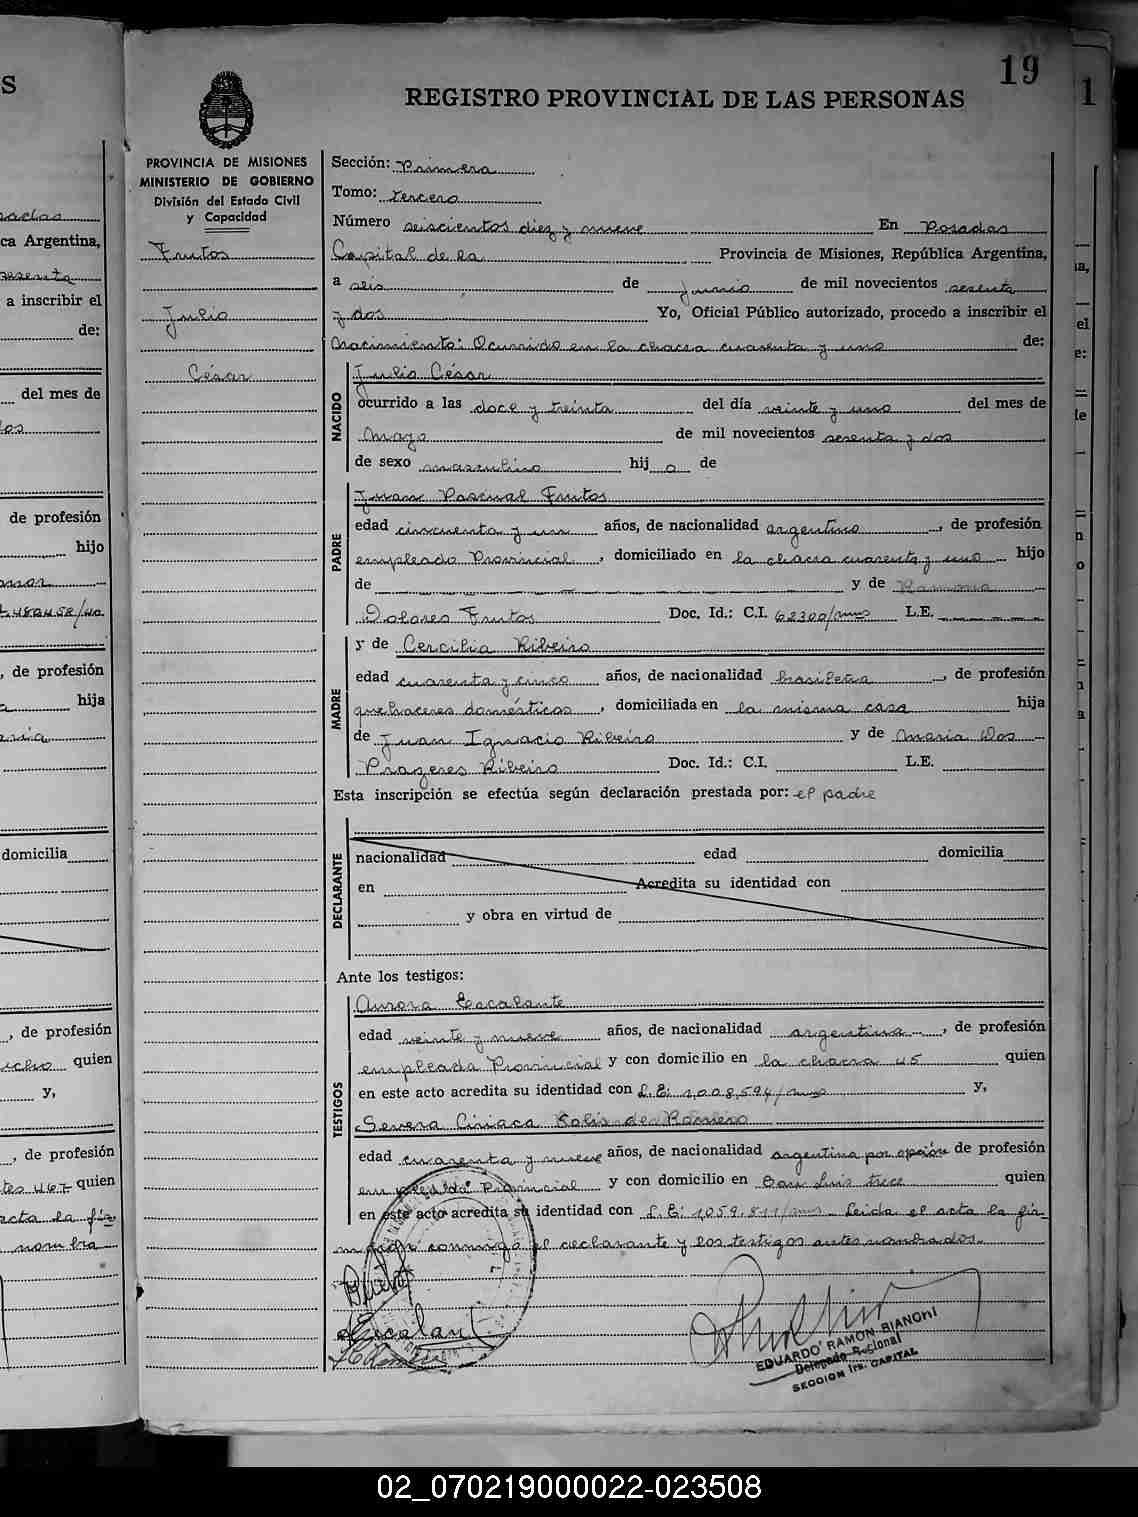 19
REGISTRO PROVINCIAL DE LAS PERSONAS
PROVINCIA DE MISIONES
MINISTERIO DE GOBIERNO
División del Estado Civil
y Capacidad
Frutos
Julio
César
Sección: Primera
Tomo: tercero
Número seiscientos diez y nueve En Posadas
Capital de la Provincia de Misiones, República Argentina,
a seis de junio de mil novecientos sesenta
y dos Yo, Oficial Público autorizado, procedo a inscribir el
Nacimiento: Ocurrido en la chacra cuarenta y uno de:
NACIDO
Julio César
ocurrido a las doce y treinta del día veinte y uno del mes de
Mayo de mil novecientos sesenta y dos
de sexo masculino hij o de
PADRE
Juan Pascual Frutos
edad cincuenta y un años, de nacionalidad argentino, de profesión
empleado Provincial, domiciliado en la chacra cuarenta y uno hijo
de y de Ramona
Dolores Frutos Doc. Id.: C.I. 62300/mns L.E.
MADRE
y de Cercilia Ribeiro
edad cuarenta y cinco años, de nacionalidad brasileña, de profesión
quehaceres domésticos, domiciliada en la misma casa hija
de Juan Ignacio Ribeiro y de Maria Dos
Prazeres Ribeiro Doc. Id.: C.I. L.E.
Esta inscripción se efectúa según declaración prestada por: el padre
DECLARANTE
nacionalidad edad domicilia
en Acredita su identidad con
y obra en virtud de
Ante los testigos:
TESTIGOS
Aurora Escalante
edad veinte y nueve años, de nacionalidad argentina, de profesión
empleada Provincial y con domicilio en la chacra 45 quien
en este acto acredita su identidad con L.E: 1,008,594/mns y,
Severa Ciriaca de Romero
edad cuarenta y nueve años, de nacionalidad argentina por opción de profesión
empleada Provincial y con domicilio en San Luis trece quien
en este acto acredita su identidad con L.E: 1,059,811/mns Leida el acta la fir-
man conmigo el declarante y los testigos antes nombrados.
EDUARDO RAMON BIANCHI
Delegado Regional
SECCION 1ra. CAPITAL
S
ca Argentina,
a inscribir el
de:
del mes de
de profesión
hijo
, de profesión
hija
domicilia
, de profesión
quien
y,
, de profesión
quien
acta la fir
nombra
1
02_070219000022-023508